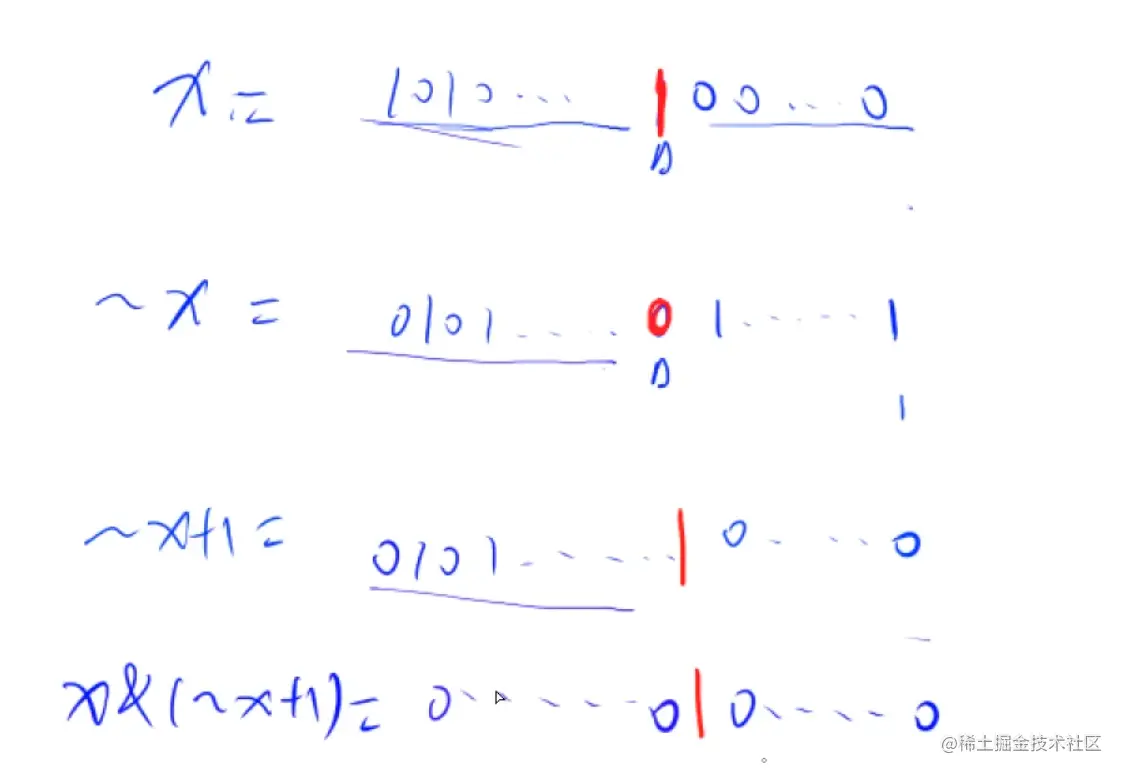 x = 1010... 1 00...0
~x = 0101.... 0 1.....1
1
~x+1 = 0101...... 1 0....0
x&(~x+1) = 0......0 1 0.....0
@稀土掘金技术社区